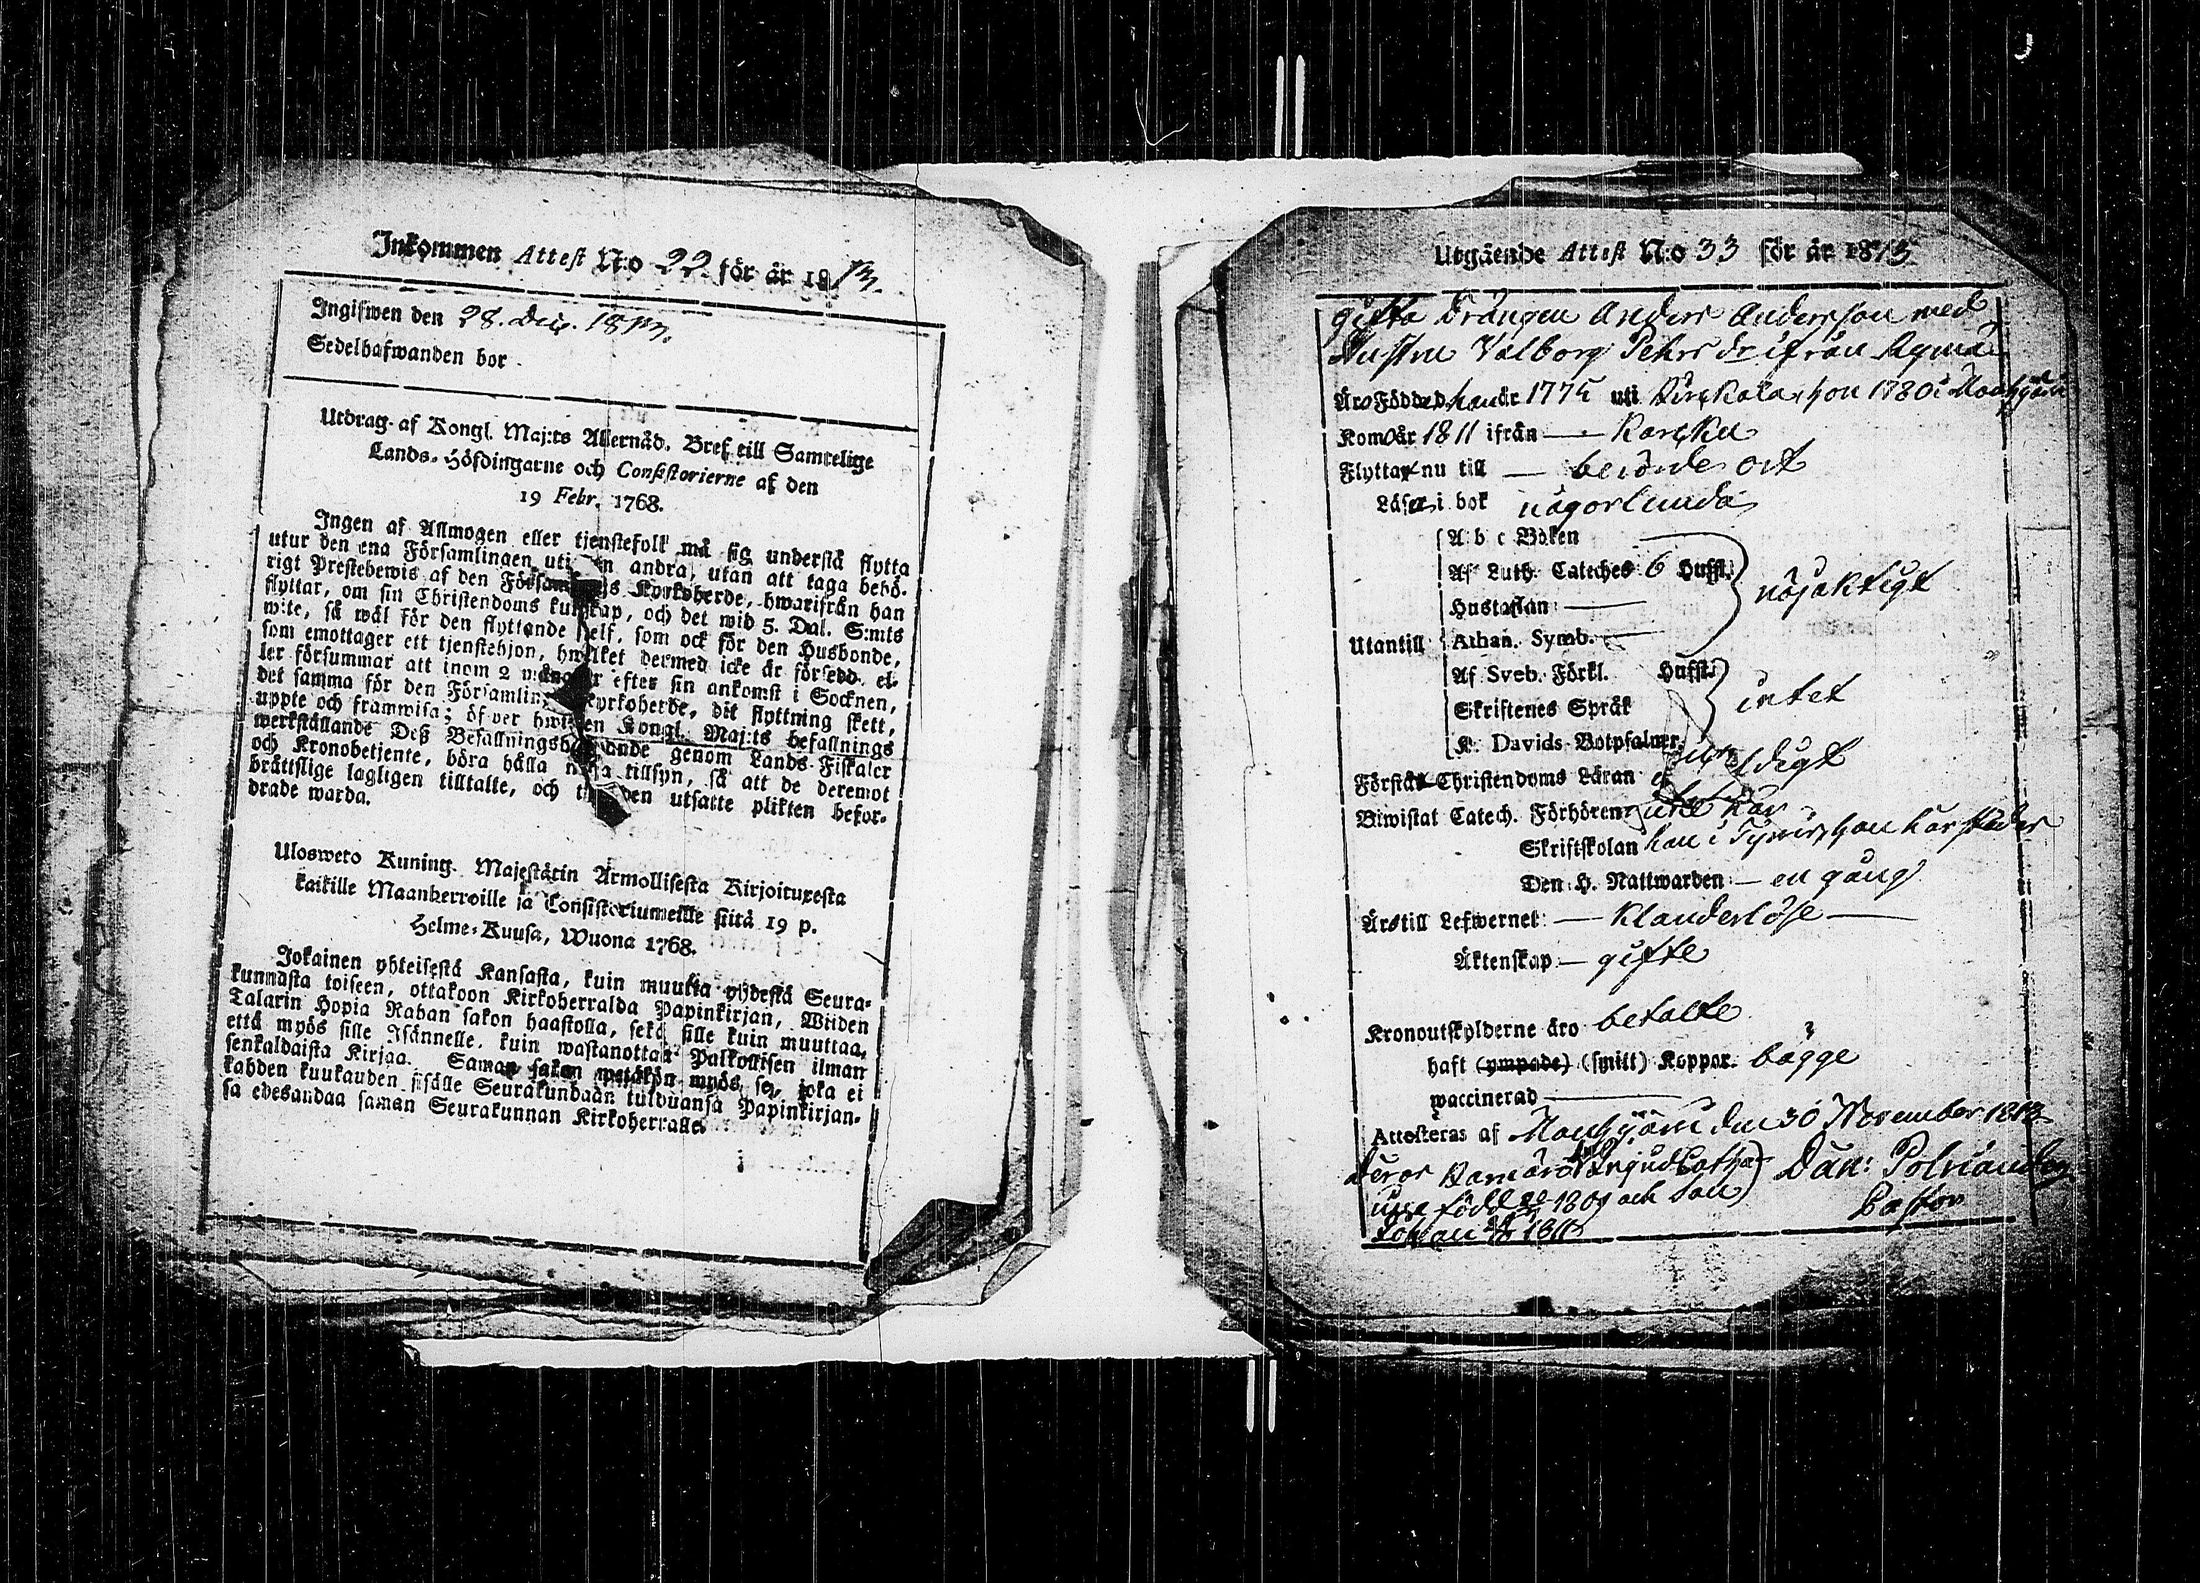 Inkommen Attest N:o 22 för år 1813.
Ingifwen den 28. Dec. 1813.
Sedelhafwanden bor
Utdrag af Kongl. Maj:ts Allernåd. Bref till Samtelige
Lands-Höfdingarne och Consistorierne af den
19 Febr. 1768.
Ingen af Allmogen eller tjenstefolk må sig understå flytta
utur den ena Församlingen uti en andra, utan att taga behö-
rigt Prestebewis af den Församlings Kyrkoherde, hwarifrån han
flyttar, om sin Christendoms kunskap, och det wid 5. Dal. S:mts
wite, så wäl för den flyttande self, som ock för den Husbonde,
som emottager ett tjenstehjon, hwilket dermed icke är försedd. el-
ler försummar att inom 2 månader efter sin ankomst i Socknen,
det samma för den Församlings Kyrkoherde, dit flyttning skett,
uppte och framwisa; öfver hwilken Kongl. Maj:ts befallnings
werkställande Deß Befallningshafwande genom Lands-Fiskaler
och Kronobetjente, böra hålla noga tillsyn, så att de deremot
bråttslige lagligen tilltalte, och till den utsatte plikten befor-
drade warda.
Ulosweto Kuning. Majestätin Armollisesta Kirjoituxesta
kaikille Maanherroille ja Consistoriumeille siitä 19 p.
Helme-Kuusa, Wuona 1768.
Jokainen yhteisestä Kansasta, kuin muutta yhdestä Seura-
kunnasta toiseen, ottakoon Kirkoherralda Papinkirjan, Wiiden
Talarin Hopia Rahan sakon haastolla, sekä sille kuin muuttaa,
että myös sille Isännelle, kuin wastanottaa Palkollisen ilman
senkaldaista Kirjaa. Saman sakon wetäkön myös se, joka ei
kahden kuukauden sisälle Seurakundaan tulduansa Papinkirjan-
sa edesandaa saman Seurakunnan Kirkoherralle.
Utgående Attest N:o 33 för år 1813
gifta Drängen Anders Andersson med
Hustru Valborg Pehrs dr ifrån
Äro Födde han år 1775 uti hon 1780 i
Kom år 1811 ifrån — Karsku
Flytta nu till —
Läsa i bok någorlunda
A b c Boken
Af Luth. Cateches 6 Hufst.
nöjaktigt
Hustaflan —
Utantill
Athan. Symb. —
Af Sveb. Förkl. Hufst.
Skriftenes Språk
intet
K. Davids Botpsalmer.
Förstå Christendoms Läran
Biwistat Catech. Förhören
Skriftskolan han i hon har
Den H. Nattwarden — en gång
Äro till Lefwernet — klanderlöse —
Äktenskap — gifte
Kronoutskylderne äro betalte
haft (ympade) (smitt) Koppor. bägge
waccinerad —
Attesteras af den 30 November 1813
Dan:
född 1809 och son
Pastor
Johan 1811